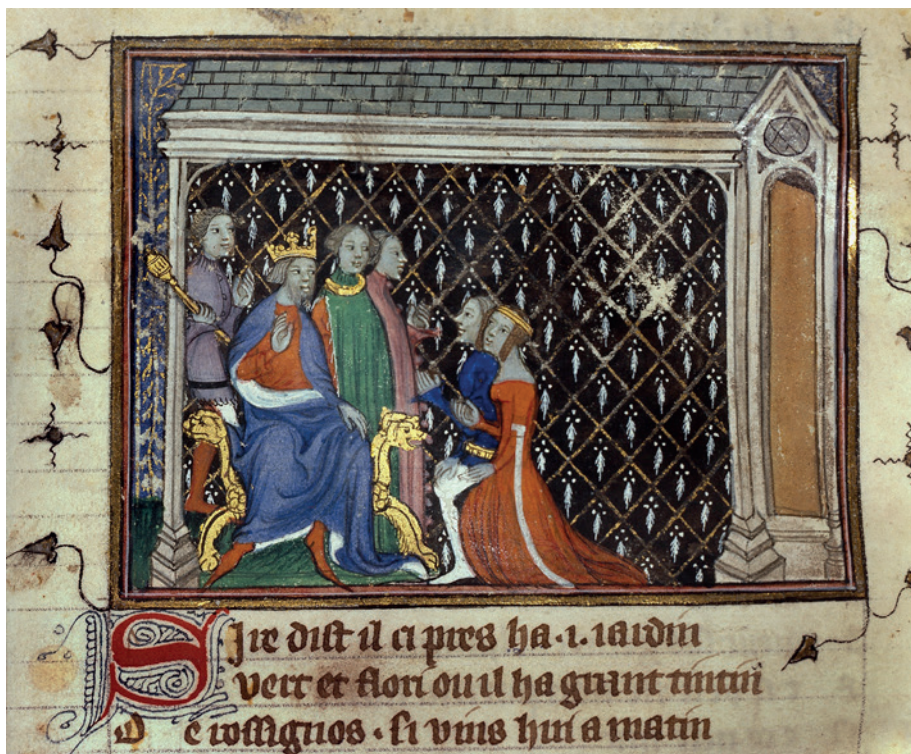 Sire dist il ci pres ha ·i· iardin
vert et flori ou il ha grant tintin
De rossignos · si vins hui a matin